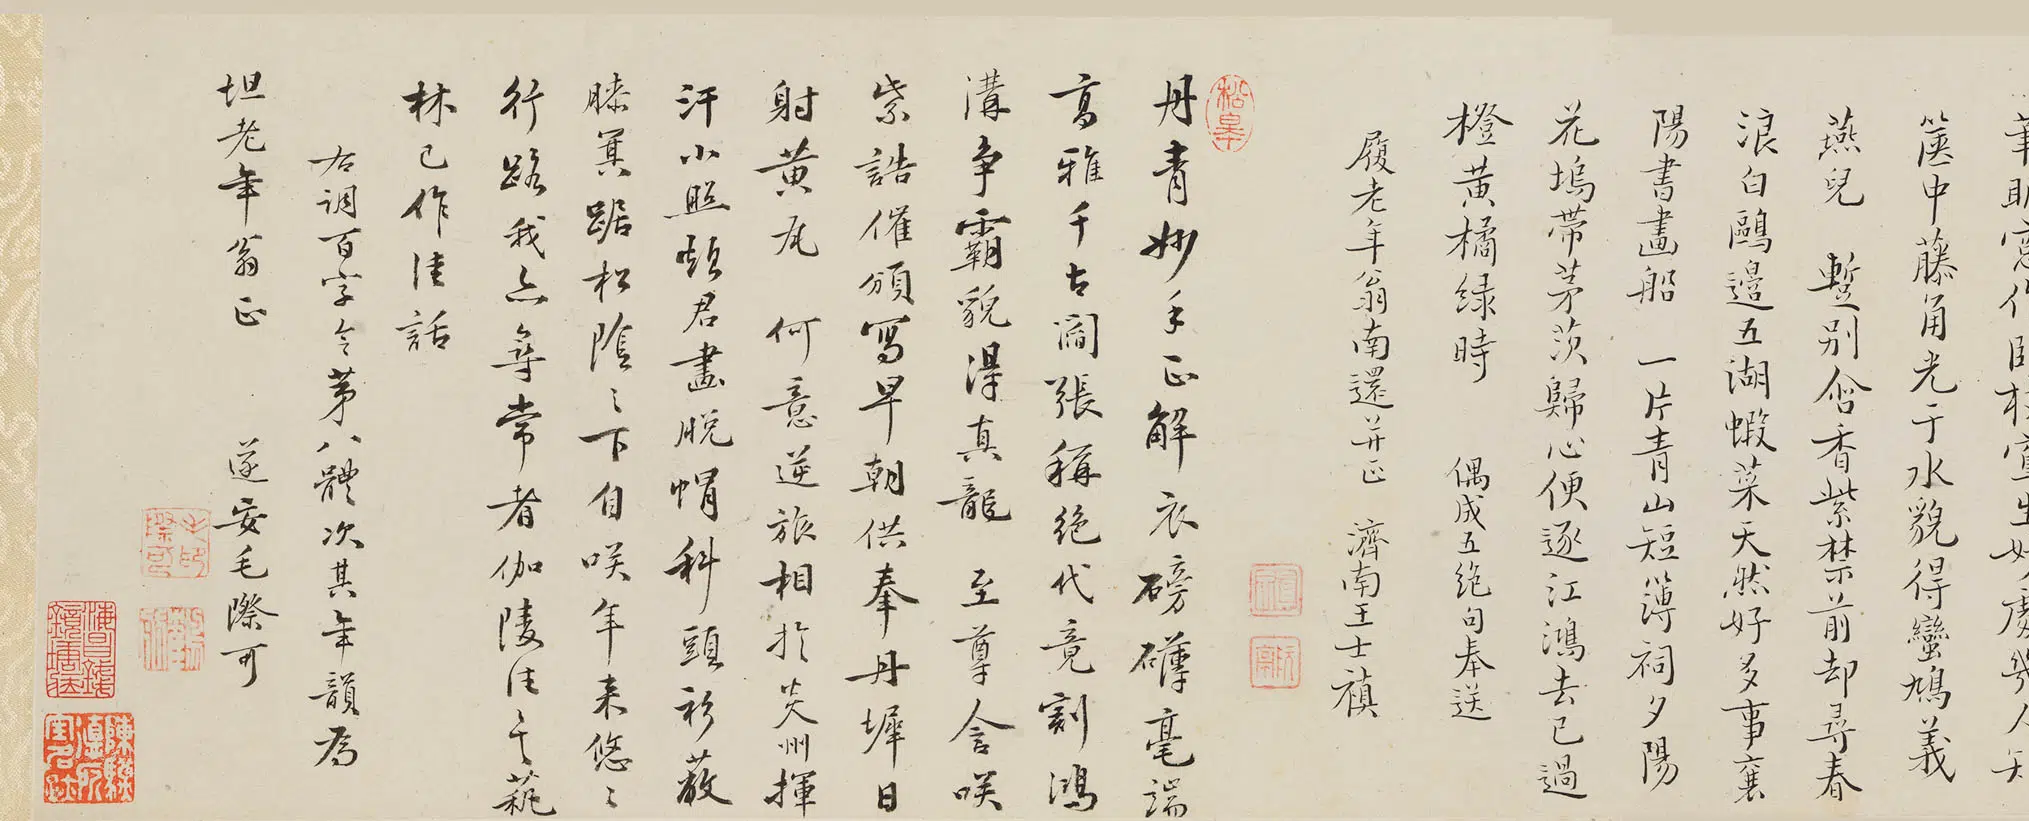 篋中藤角光于水貌得蠻鳩義
燕兒 暫別含香紫禁前却尋春
浪白鷗邊五湖蝦菜天然好多事襄
陽書畫船 一片青山短簿祠夕陽
花塢帶茅茨歸心便逐江鴻去已過
橙黃橘綠時 偶成五絕句奉送
履老年翁南還并正 濟南王士禛
松皋
丹青妙手正解衣磅礴毫端
高雅千古閻張稱絕代竟割鴻
溝爭霸貌得真龍 至尊含咲
紫誥催頒寫早朝供奉丹墀日
射黃瓦 何意逆旅相於炎州揮
汗小照煩君畫脫帽科頭衫蔽
膝箕踞松陰之下自咲年來悠悠
行路我亦尋常者伽陵佳句藝
林已作佳話
右調百字令第八體次其年韻為
坦老年翁正 遂安毛際可
毛際可印